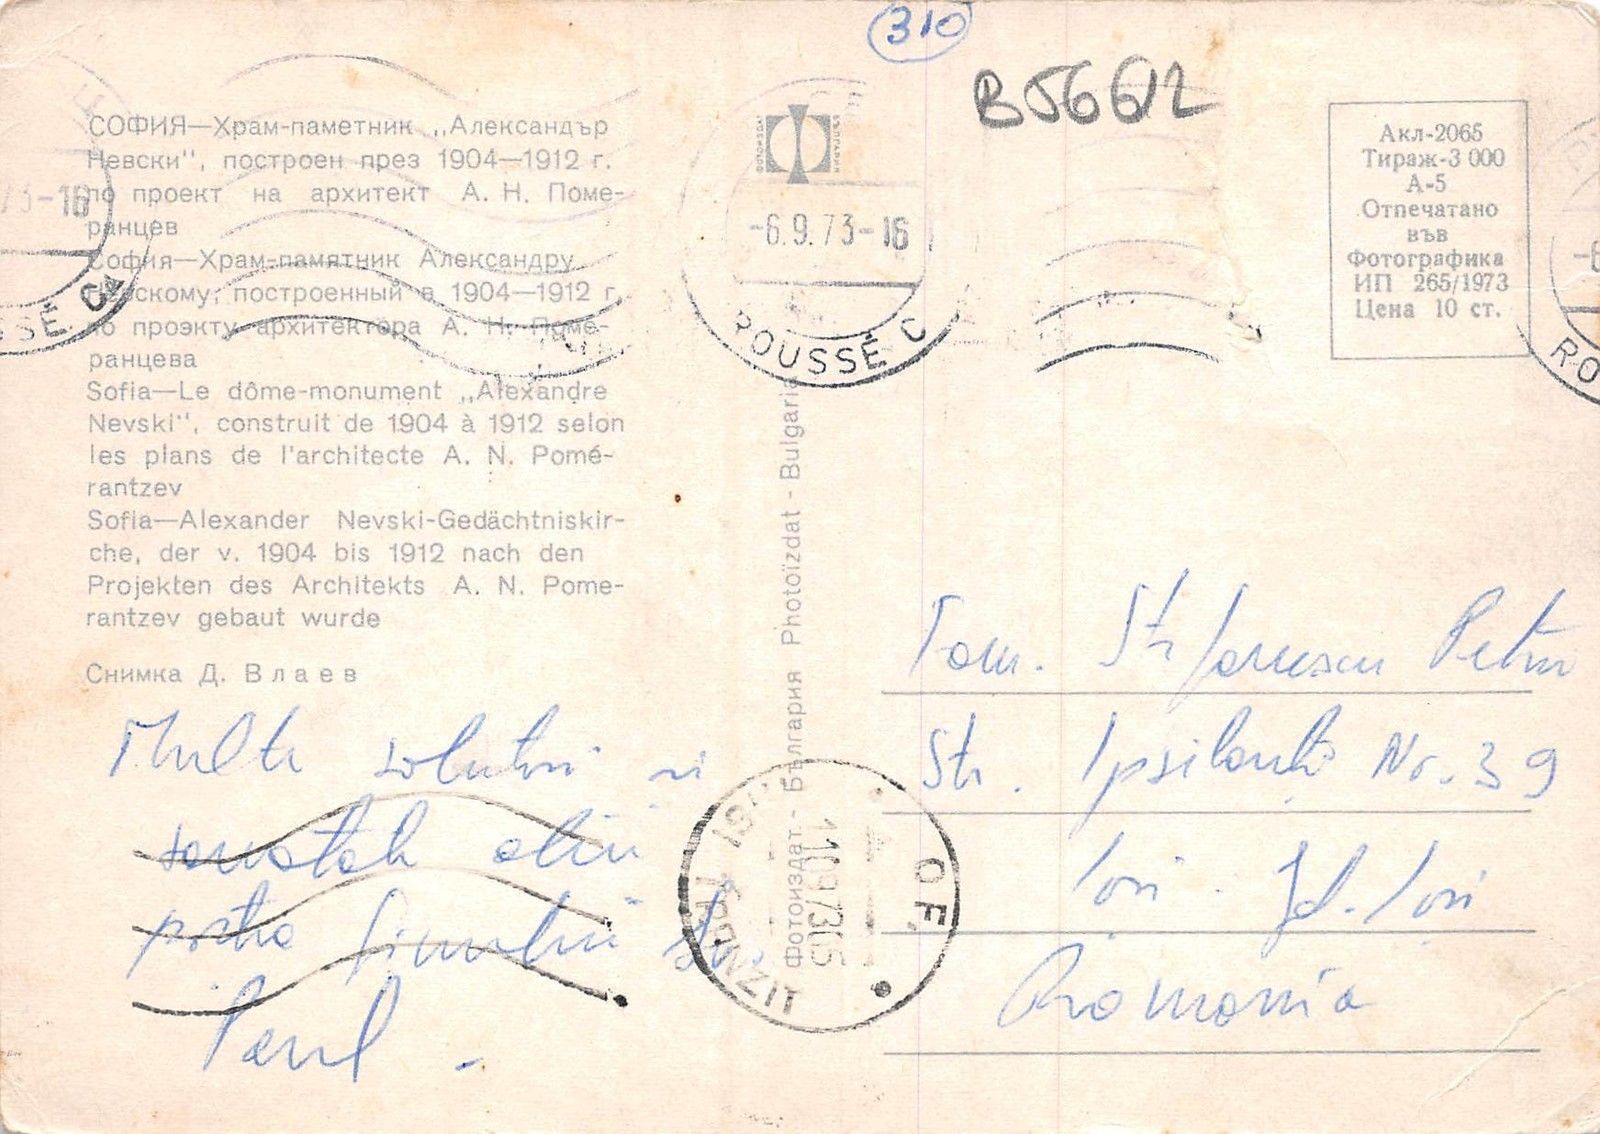 310
B5662
СОФИЯ—Храм-паметник „Александър
Невски", построен през 1904—1912 г.
по проект на архитект А. Н. Поме-
ранцев
София—Храм-памятник Александру
Невскому, построенный в 1904—1912 г.
по проэкту архитектора А. Н. Поме-
ранцева
Sofia—Le dôme-monument „Alexandre
Nevski", construit de 1904 à 1912 selon
les plans de l'architecte A. N. Pomé-
rantzev
Sofia—Alexander Nevski-Gedächtniskir-
che, der v. 1904 bis 1912 nach den
Projekten des Architekts A. N. Pome-
rantzev gebaut wurde
Снимка Д. Влаев
Multe salutări și
sănătate
Paul -
ФОТОИЗДАТ БЪЛГАРИЯ
-6.9.73-16
ROUSSÉ
73-16
SSÉ
-6
RO
Фотоиздат - България Photoïzdat - Bulgarie
IAȘI TRANZIT
11 09 73 05
OF.
Акл-2065
Тираж-3 000
А-5
Отпечатано
във
Фотографика
ИП 265/1973
Цена 10 ст.
Fam. Ștefănescu Petru
Str. Ipsilanti Nr. 39
Iași - Jd. Iași
Romania